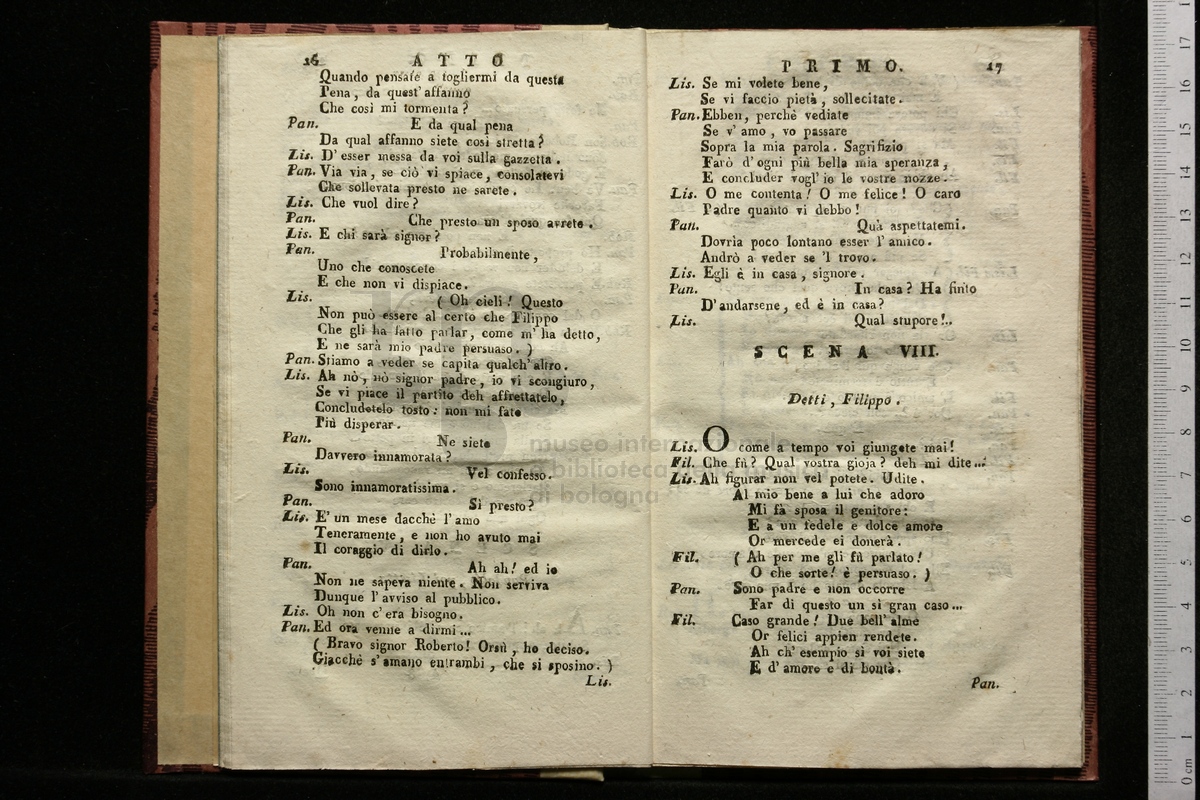 16 ATTO
Quando pensate a togliermi da questa
Pena, da quest' affanno
Che così mi tormenta?
Pan. E da qual pena
Da qual affanno siete così stretta?
Lis. D' esser messa da voi sulla gazzetta.
Pan. Via via, se ciò vi spiace, consolatevi
Che sollevata presto ne sarete.
Lis. Che vuol dire?
Pan. Che presto un sposo avrete.
Lis. E chi sarà signor?
Pan. Probabilmente,
Uno che conoscete
E che non vi dispiace.
Lis. ( Oh cieli! Questo
Non può essere al certo che Filippo
Che gli ha fatto parlar, come m' ha detto,
E ne sarà mio padre persuaso. )
Pan. Stiamo a veder se capita qualch' altro.
Lis. Ah nò, nò signor padre, io vi scongiuro,
Se vi piace il partito deh affrettatelo,
Concludetelo tosto: non mi fate
Più disperar.
Pan. Ne siete
Davvero innamorata?
Lis. Vel confesso.
Sono innamoratissima.
Pan. Sì presto?
Lis. E' un mese dacchè l' amo
Teneramente, e non ho avuto mai
Il coraggio di dirlo.
Pan. Ah ah! ed io
Non ne sapeva niente. Non serviva
Dunque l' avviso al pubblico.
Lis. Oh non c' era bisogno.
Pan. Ed ora venne a dirmi ...
( Bravo signor Roberto! Orsù, ho deciso.
Giacchè s' amano entrambi, che si sposino. )
Lis.
PRIMO. 17
Lis. Se mi volete bene,
Se vi faccio pietà, sollecitate.
Pan. Ebben, perchè vediate
Se v' amo, vo passare
Sopra la mia parola. Sagrifizio
Farò d' ogni più bella mia speranza,
E concluder vogl' io le vostre nozze.
Lis. O me contenta! O me felice! O caro
Padre quanto vi debbo!
Pan. Quà aspettatemi.
Dovria poco lontano esser l' amico.
Andrò a veder se 'l trovo.
Lis. Egli è in casa, signore.
Pan. In casa? Ha finto
D' andarsene, ed è in casa?
Lis. Qual stupore!..
SCENA VIII.
Detti, Filippo.
Lis. O come a tempo voi giungete mai!
Fil. Che fù? Qual vostra gioja? deh mi dite...
Lis. Ah figurar non vel potete. Udite.
Al mio bene a lui che adoro
Mi fà sposa il genitore:
E a un fedele e dolce amore
Or mercede ei donerà.
Fil. ( Ah per me gli fù parlato!
O che sorte! è persuaso. )
Pan. Sono padre e non occorre
Far di questo un sì gran caso ...
Fil. Caso grande! Due bell' alme
Or felici appien rendete.
Ah ch' esempio sì voi siete
E d' amore e di bontà.
Pan.
museo internazionale
e biblioteca della musica
di bologna
0 cm 1 2 3 4 5 6 7 8 9 10 11 12 13 14 15 16 17